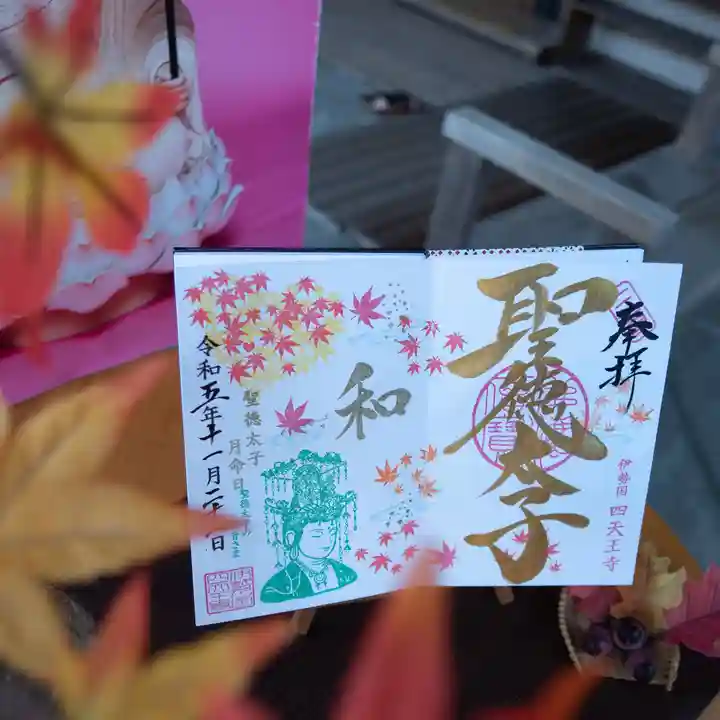 奉拝
聖徳太子
伊勢国 四天王寺
和
聖徳太子
月命日
令和五年十一月二十二日